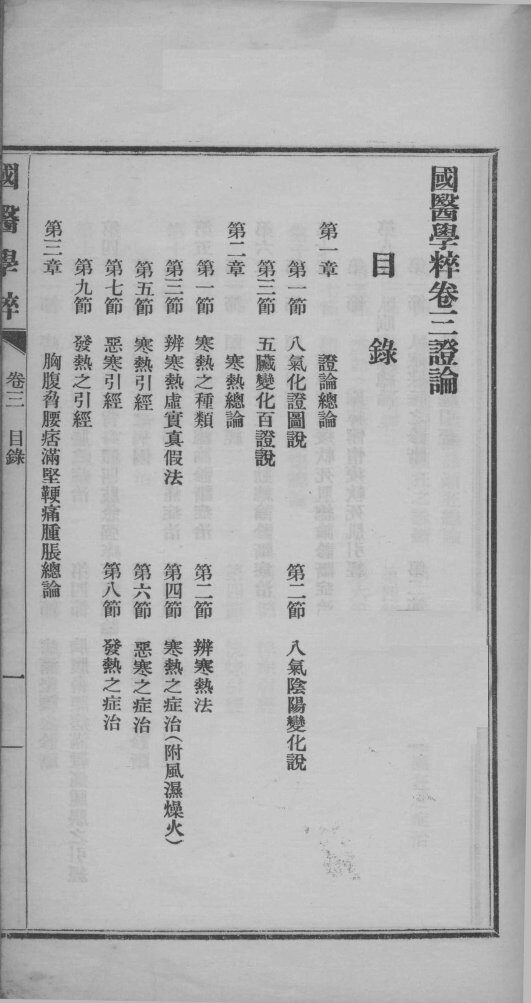 國醫學粹卷三證論
目錄
第一章　證論總論
第一節　八氣化證圖說　第二節　八氣陰陽變化說
第三節　五臟變化百證說
第二章　寒熱總論
第一節　寒熱之種類　第二節　辨寒熱法
第三節　辨寒熱虛實真假法　第四節　寒熱之症治(附風濕燥火)
第五節　寒熱引經　第六節　惡寒之症治
第七節　惡寒引經　第八節　發熱之症治
第九節　發熱之引經
第三章　胸腹脅腰痞滿堅鞕痛腫脹總論
國醫學粹　卷三　目錄　一